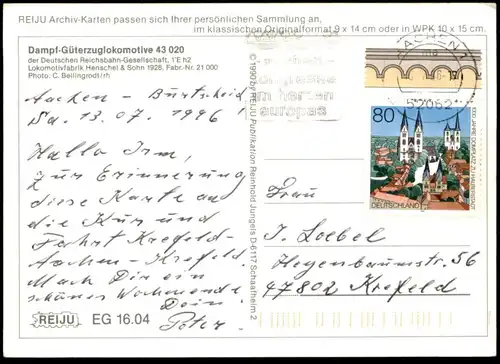 REIJU Archiv-Karten passen sich Ihrer persönlichen Sammlung an,
im klassischen Originalformat 9 x 14 cm oder in WPK 10 x 15 cm.
Dampf-Güterzuglokomotive 43 020
der Deutschen Reichsbahn-Gesellschaft, 1'E h2
Lokomotivfabrik Henschel & Sohn 1928, Fabr.-Nr. 21 000
Photo: C. Bellingrodt/rh
Aachen - Burtscheid
Sa. 13.07.1996
Hallo Irm,
zur Erinnerung
diese Karte an
die Kur und
Fahrt Krefeld-
Aachen - Krefeld.
Mach Dir ein
schönes Wochenende
Dein
Peter
REIJU EG 16.04
© 1990 by REIJU Publikation Reinhold Jungels D-6117 Schaafheim 2
im herzen
europas
AACHEN 1
52062
80
1000 JAHRE DOMPLATZ ZU HALBERSTADT
DEUTSCHLAND
Frau
I. Loebel
Hegenbaumstr. 56
47802 Krefeld